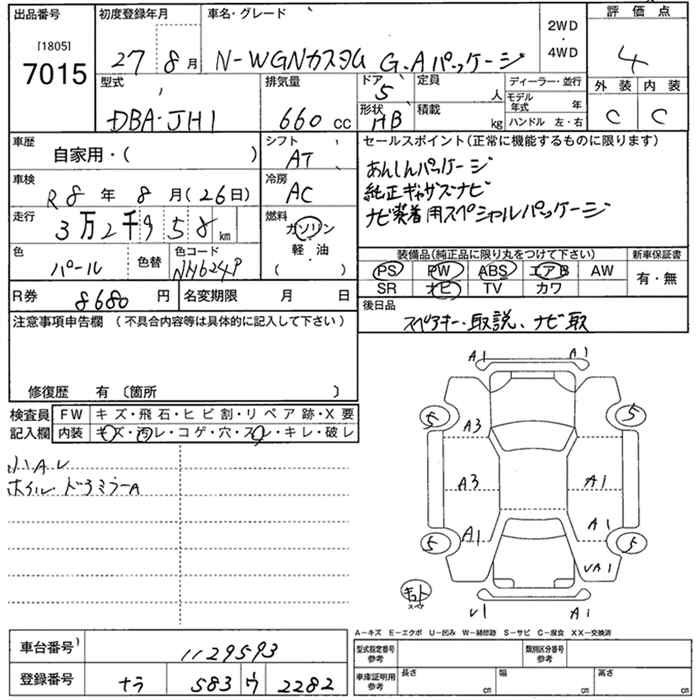 出品番号
[1805]
7015
初度登録年月
27年8月
車名・グレード
N-WGNカスタム G・Aパッケージ
2WD
・
4WD
評価点
4
外装 内装
C C
型式
DBA-JH1
排気量
660 cc
ドア
5
形状
HB
定員
人
積載
kg
ディーラー・並行
モデル年式 年
ハンドル 左・右
車歴
自家用・( )
シフト
AT
車検
R8年8月(26日)
冷房
AC
走行
3万2千958km
燃料
ガソリン
軽・油
( )
色
パール
色替
色コード
NH624P
R券
8680円
名変期限 月 日
セールスポイント(正常に機能するものに限ります)
あんしんパッケージ
純正ギャザズナビ
ナビ装着用スペシャルパッケージ
装備品(純正品に限り丸をつけて下さい)
新車保証書
PS PW ABS エアB AW
SR ナビ TV カワ
有・無
後日品
スペアキー・取説、ナビ取
注意事項申告欄(不具合内容等は具体的に記入して下さい)
修復歴 有〔箇所 〕
検査員記入欄
FW キズ・飛石・ヒビ割・リペア跡・X要
内装 キズ・汚レ・コゲ・穴・スレ・キレ・破レ
小Aレ
ホイル ドアミラーA
A1 A1
5 5
A3
A3 A1
A1 A1
5 5
VA1
キット
スペア
V1 A1
A―キズ E―エクボ U―凹ミ W―補修跡 S―サビ C―腐食 XX―交換済
車台番号
1129593
登録番号
ナラ 583 ウ 2282
型式指定番号
参考
類別区分番号
参考
車庫証明用
参考
長さ cm
幅 cm
高さ cm